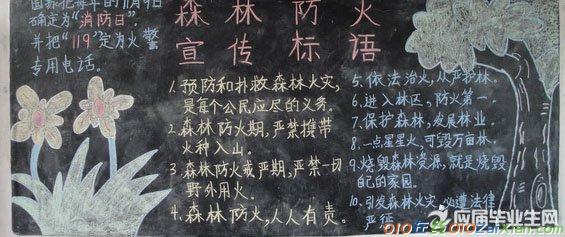 国家把每年的11月9
确定为“消防日”。
并把“119”定为火警
专用电话。
森林防火
宣传标语
1.预防和扑救森林火灾,
是每个公民应尽的义务。
2.森林防火期,严禁携带
火种入山。
3.森林防火戒严期,严禁一切
野外用火。
4.森林防火,人人有责。
5.依法治火,从严护林。
6.进入林区,防火第一。
7.保护森林,发展林业。
8.一点星星火,可毁万亩林。
9.烧毁森林资源,就是烧毁
自己的家园。
10.引发森林火灾,必遭法律
严惩。
应届毕业生网